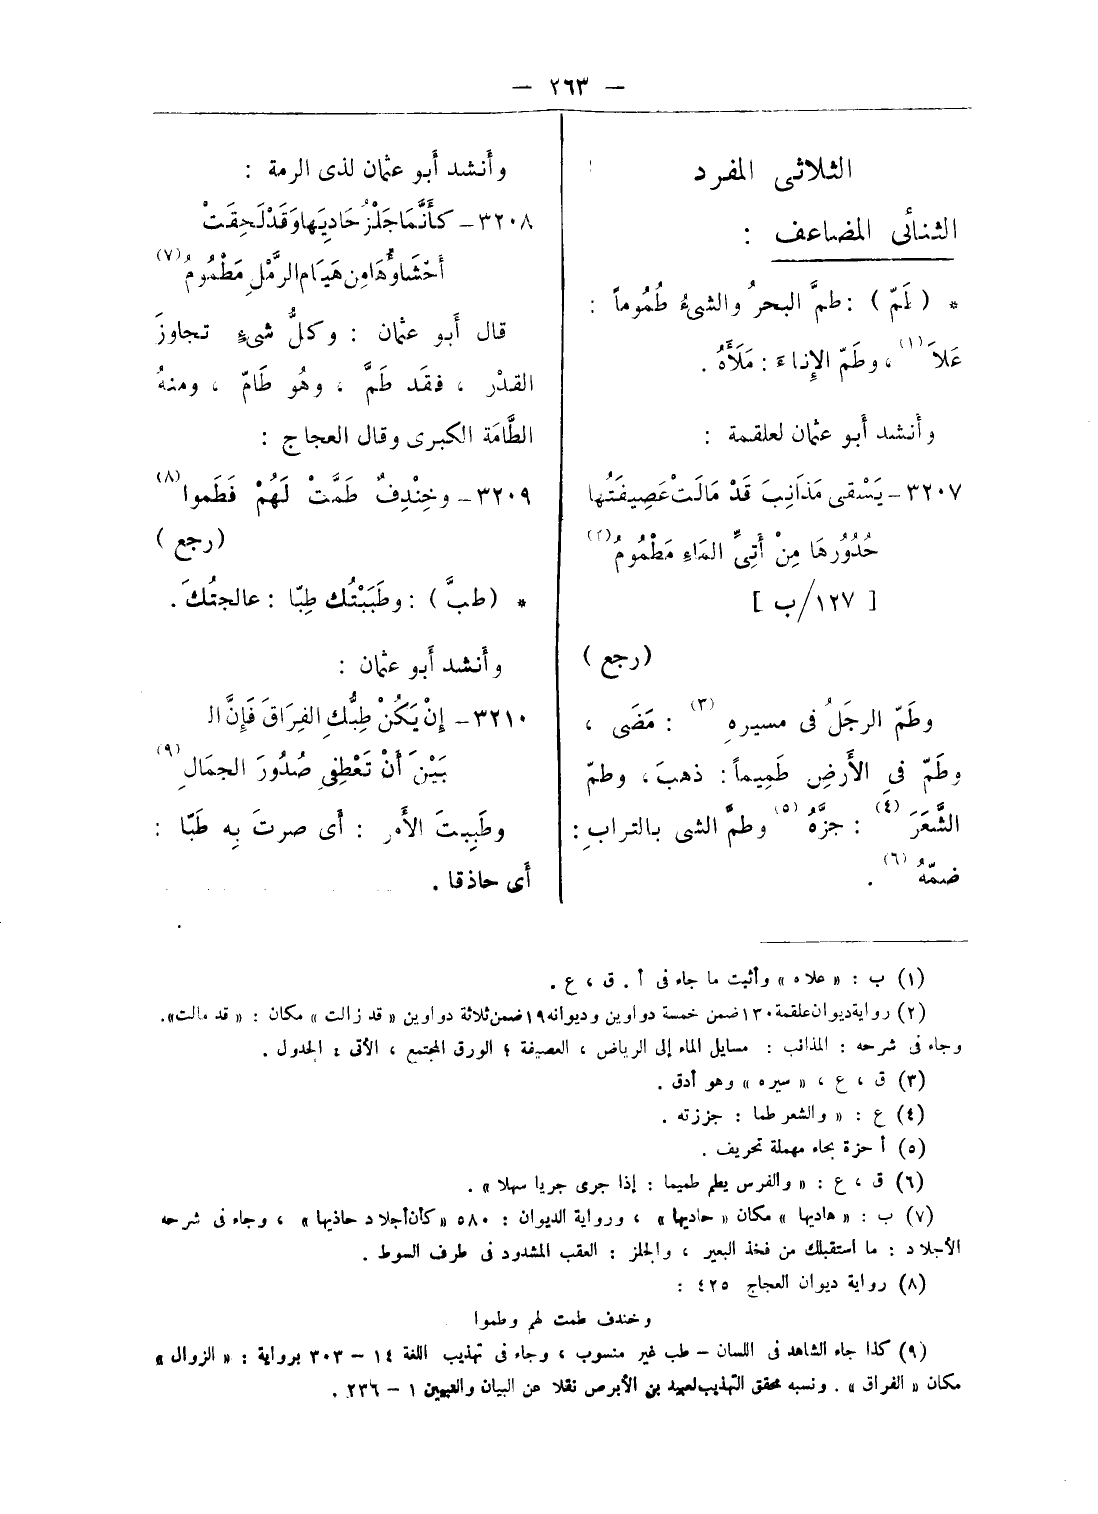 — ٢٦٣ —
الثلاثى المفرد
الثنائى المضاعف :
* ( طَمّ ) : طمَّ البحرُ والشىءُ طُمُوماً :
عَلاَ (١) ، وطَمّ الإِناءَ : مَلَأَهُ .
وأَنشد أَبو عثمان لعلقمة :
٣٢٠٧ – يَسْقى مَذَانِبَ قَدْ مَالَتْ عَصِيفَتُها
حُدُورُهَا مِنْ أَتِىِّ المَاءِ مَطْمُومُ (٢)
[ ١٢٧/ب ]
( رجع )
وطَمّ الرجَلُ فى مسيرهِ (٣) : مَضَى ،
وطَمّ فى الأَرضِ طَمِيماً : ذهبَ ، وطمّ
الشَّعَرَ (٤) : جزَّهُ (٥) وطمَّ الشى بالترابِ :
ضمّهُ (٦) .
وأَنشد أَبو عثمان لذى الرمة :
٣٢٠٨ – كأَنَّمَا جَلْزُ حَادِيَها وَقَدْ لَحِقَتْ
أَحْشَاؤُهَا مِن هَيَامِ الرَّمْلِ مَطْمُومُ (٧)
قال أَبو عثمان : وكلُّ شىءٍ تجاوزَ
القدْر ، فقَد طَمَّ ، وهُو طَامّ ، ومنهُ
الطَّامَة الكبرى وقال العجاج :
٣٢٠٩ – وخِنْدِفٌ طَمَّتْ لَهُمْ فَطَموا (٨)
( رجع )
* ( طبَّ ) : وطَبَبْتُك طِبّا : عالجتُكَ .
وأَنشد أَبو عثمان :
٣٢١٠ – إِنْ يَكُنْ طِبُّكِ الفِرَاقَ فَإِنَّ الـ
بَيْنَ أَنْ تَعْطِفِى صُدُورَ الجمَالِ (٩)
وطَبِبتَ الأَمر : أَى صرتَ بِه طَبّا :
أَى حاذقا .
(١) ب : « علاه » وأثبت ما جاء فى أ . ق ، ع .
(٢) رواية ديوان علقمة ١٣٠ ضمن خمسة دواوين وديوانه ١٩ ضمن ثلاثة دواوين « قد زالت » مكان : « قد مالت ».
وجاء فى شرحه : المذانب : مسايل الماء إلى الرياض ، العصيفة ؛ الورق المجتمع ، الأتى ؛ الجدول .
(٣) ق ، ع ، « سيره » وهو أدق .
(٤) ع : « والشعر طما : جززته .
(٥) أ حزة بحاء مهملة تحريف .
(٦) ق ، ع : « والفرس يطم طميما : إذا جرى جريا سهلا » .
(٧) ب : « هاديها » مكان « حاديها » ، ورواية الديوان : ٥٨٠ « كأن أجلاد حاذيها » ، وجاء فى شرحه
الأجلاد : ما استقبلك من فخذ البعير ، والجلز : العقب المشدود فى طرف السوط .
(٨) رواية ديوان العجاج ٤٢٥ :
وخندف طمت لهم وطموا
(٩) كذا جاء الشاهد فى اللسان – طب غير منسوب ، وجاء فى تهذيب اللغة ١٤ – ٣٠٣ برواية : « الزوال »
مكان « الفراق » . ونسبه محقق التهذيب لعبيد بن الأبرص نقلا عن البيان والتبيين ١ – ٢٣٦ .